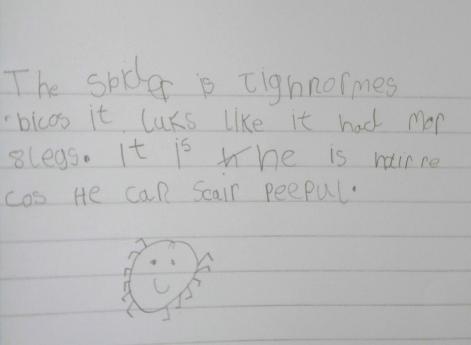 The spider is tighnormes
bicos it luks like it had mor
8 legs. It is he is
cos He can scair peepul.